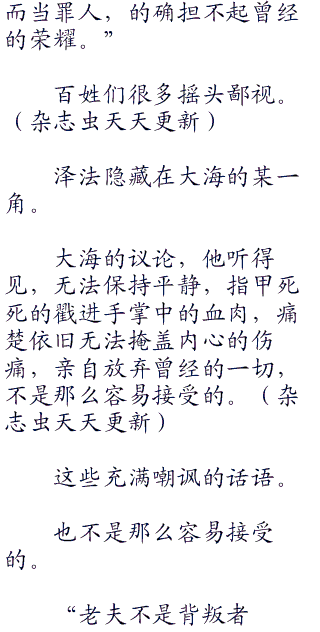 而当罪人，的确担不起曾经
的荣耀。”
百姓们很多摇头鄙视。
（杂志虫天天更新）
泽法隐藏在大海的某一
角。
大海的议论，他听得
见，无法保持平静，指甲死
死的戳进手掌中的血肉，痛
楚依旧无法掩盖内心的伤
痛，亲自放弃曾经的一切，
不是那么容易接受的。（杂
志虫天天更新）
这些充满嘲讽的话语。
也不是那么容易接受
的。
“老夫不是背叛者